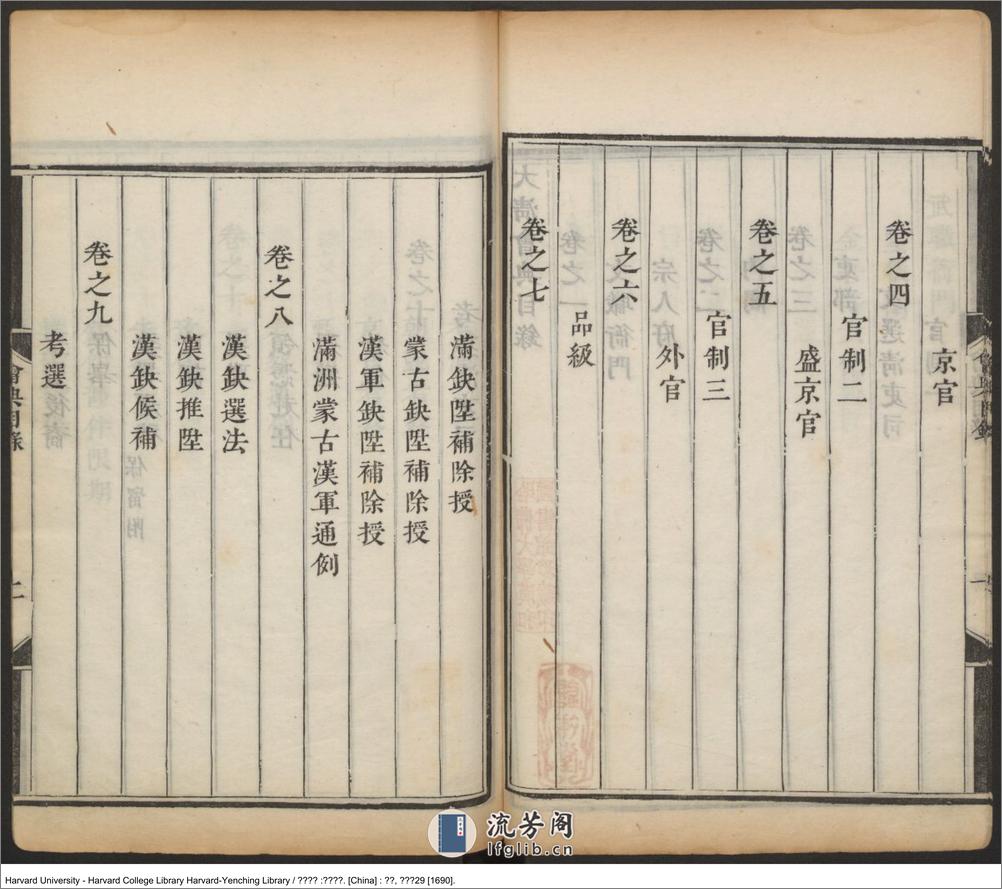 京官
卷之四
官制二
盛京官
卷之五
官制三
外官
卷之六
品級
卷之七
滿缺陞補除授
蒙古缺陞補除授
漢軍缺陞補除授
滿洲蒙古漢軍通例
卷之八
漢缺選法
漢缺推陞
漢缺候補
卷之九
考選
會典目錄
二
流芳阁
lfglib.cn
Harvard University - Harvard College Library Harvard-Yenching Library / ???? :????. [China] : ??, ???29 [1690].